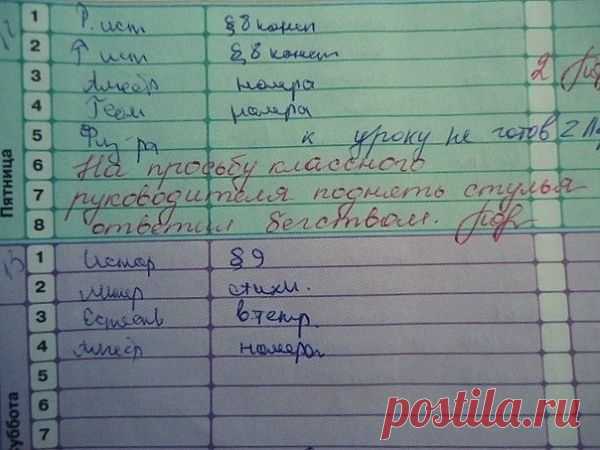 Пятница
1 Р. ист § 8 конец
2 Р ист § 8 конец
3 Алгебр номера 2
4 Геом номера
5 Физ-ра к уроку не готов 2
6 На просьбу классного
7 руководителя поднять стулья
8 ответил бегством.
Суббота
1 Истор § 9
2 Литер стихи.
3 Естеств в тетр.
4 Алгебр номера
5
6
7
postila.ru